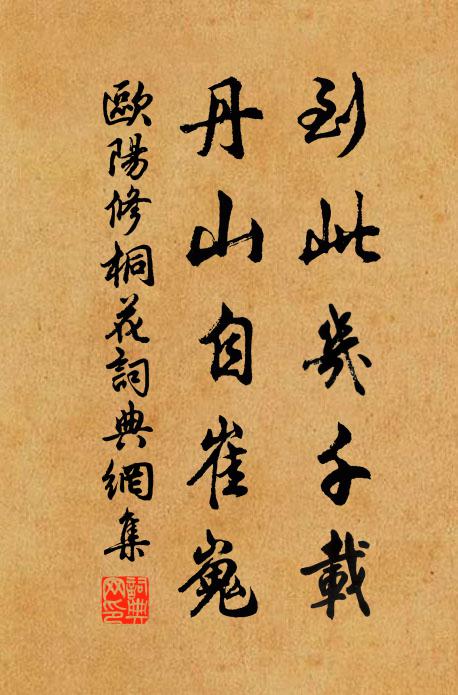 到此幾千載
丹山自崔嵬
歐陽修桐花詞典網集
詞典網印